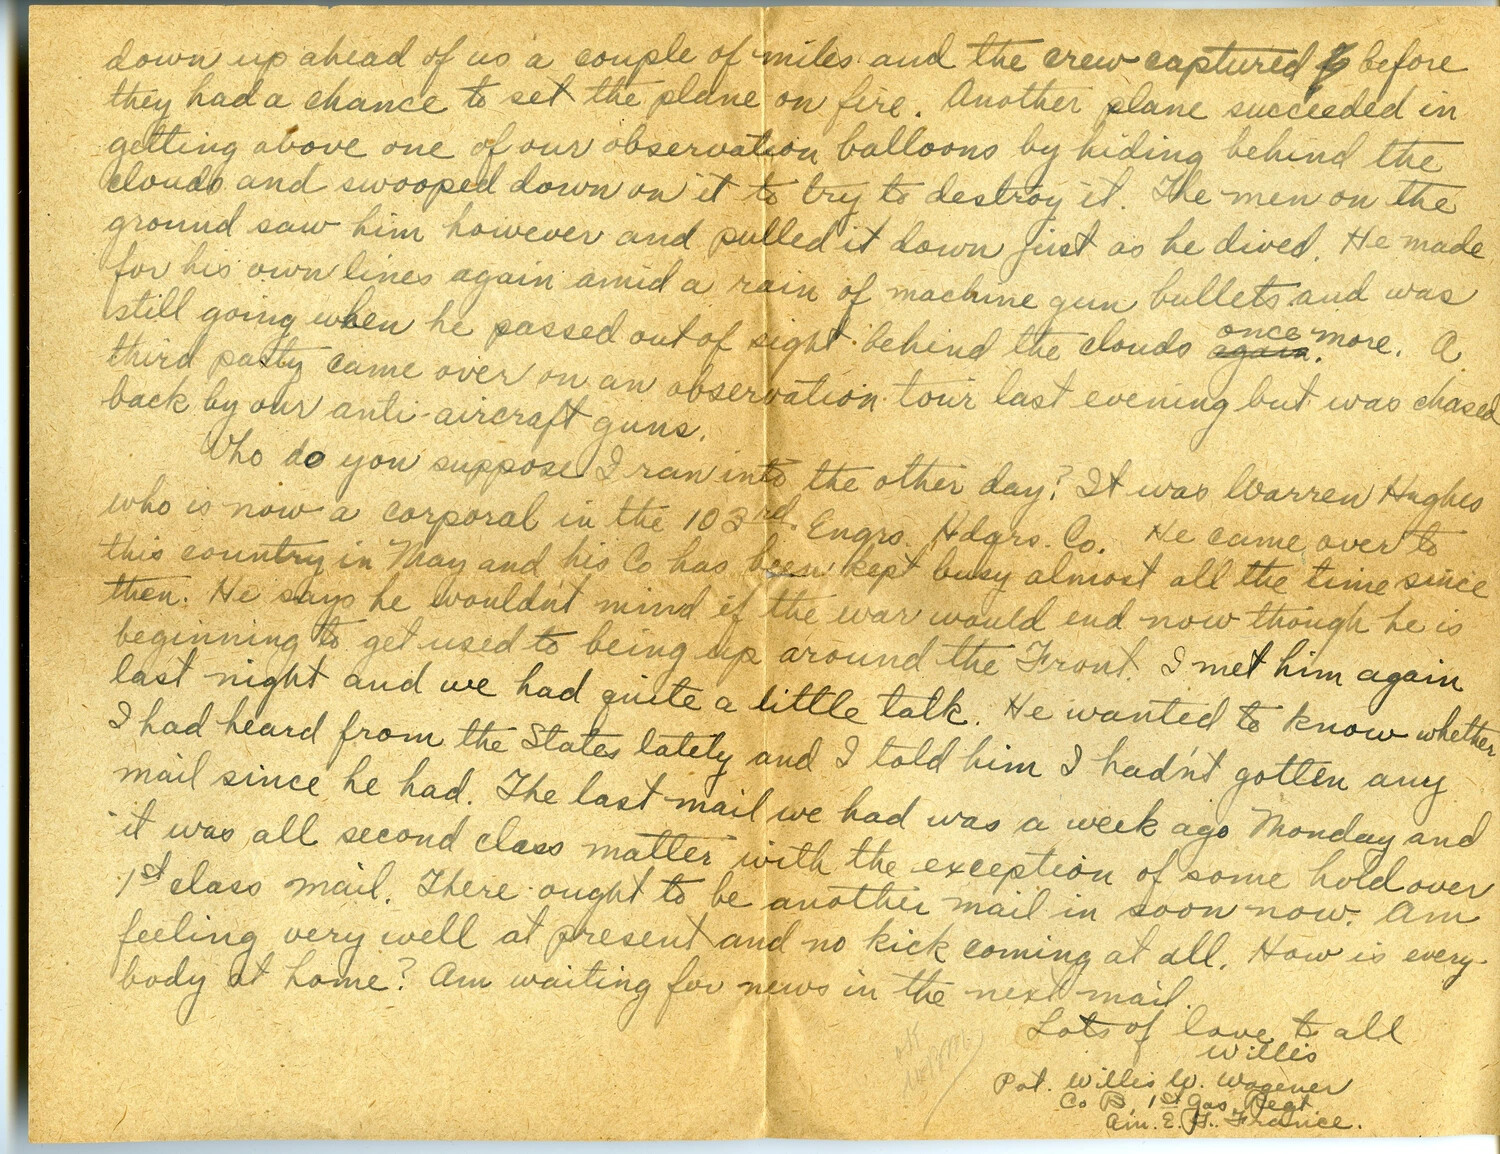 down up ahead of us a couple of miles and the crew captured before
they had a chance to set the plane on fire. Another plane succeeded in
getting above one of our observation balloons by hiding behind the
clouds and swooped down on it to try to destroy it. The men on the
ground saw him however and pulled it down just as he dived. He made
for his own lines again amid a rain of machine gun bullets and was
still going when he passed out of sight behind the clouds again. once more. A
third party came over on an observation tour last evening but was chased
back by our anti-aircraft guns.
Who do you suppose I ran into the other day? It was Warren Hughes
who is now a corporal in the 103rd. Engrs. Hdqrs. Co. He came over to
this country in May and his Co has been kept busy almost all the time since
then. He says he wouldn't mind if the war would end now though he is
beginning to get used to being up around the Front. I met him again
last night and we had quite a little talk. He wanted to know whether
I had heard from the States lately and I told him I hadn't gotten any
mail since he had. The last mail we had was a week ago Monday and
it was all second class matter with the exception of some hold over
1st class mail. There ought to be another mail in soon now. Am
feeling very well at present and no kick coming at all. How is every-
body at home? Am waiting for news in the next mail.
Lots of love to all
Willis
Pvt. Willis W. Wagener
Co B, 1st Gas Regt
Am. E. F. France.
OK